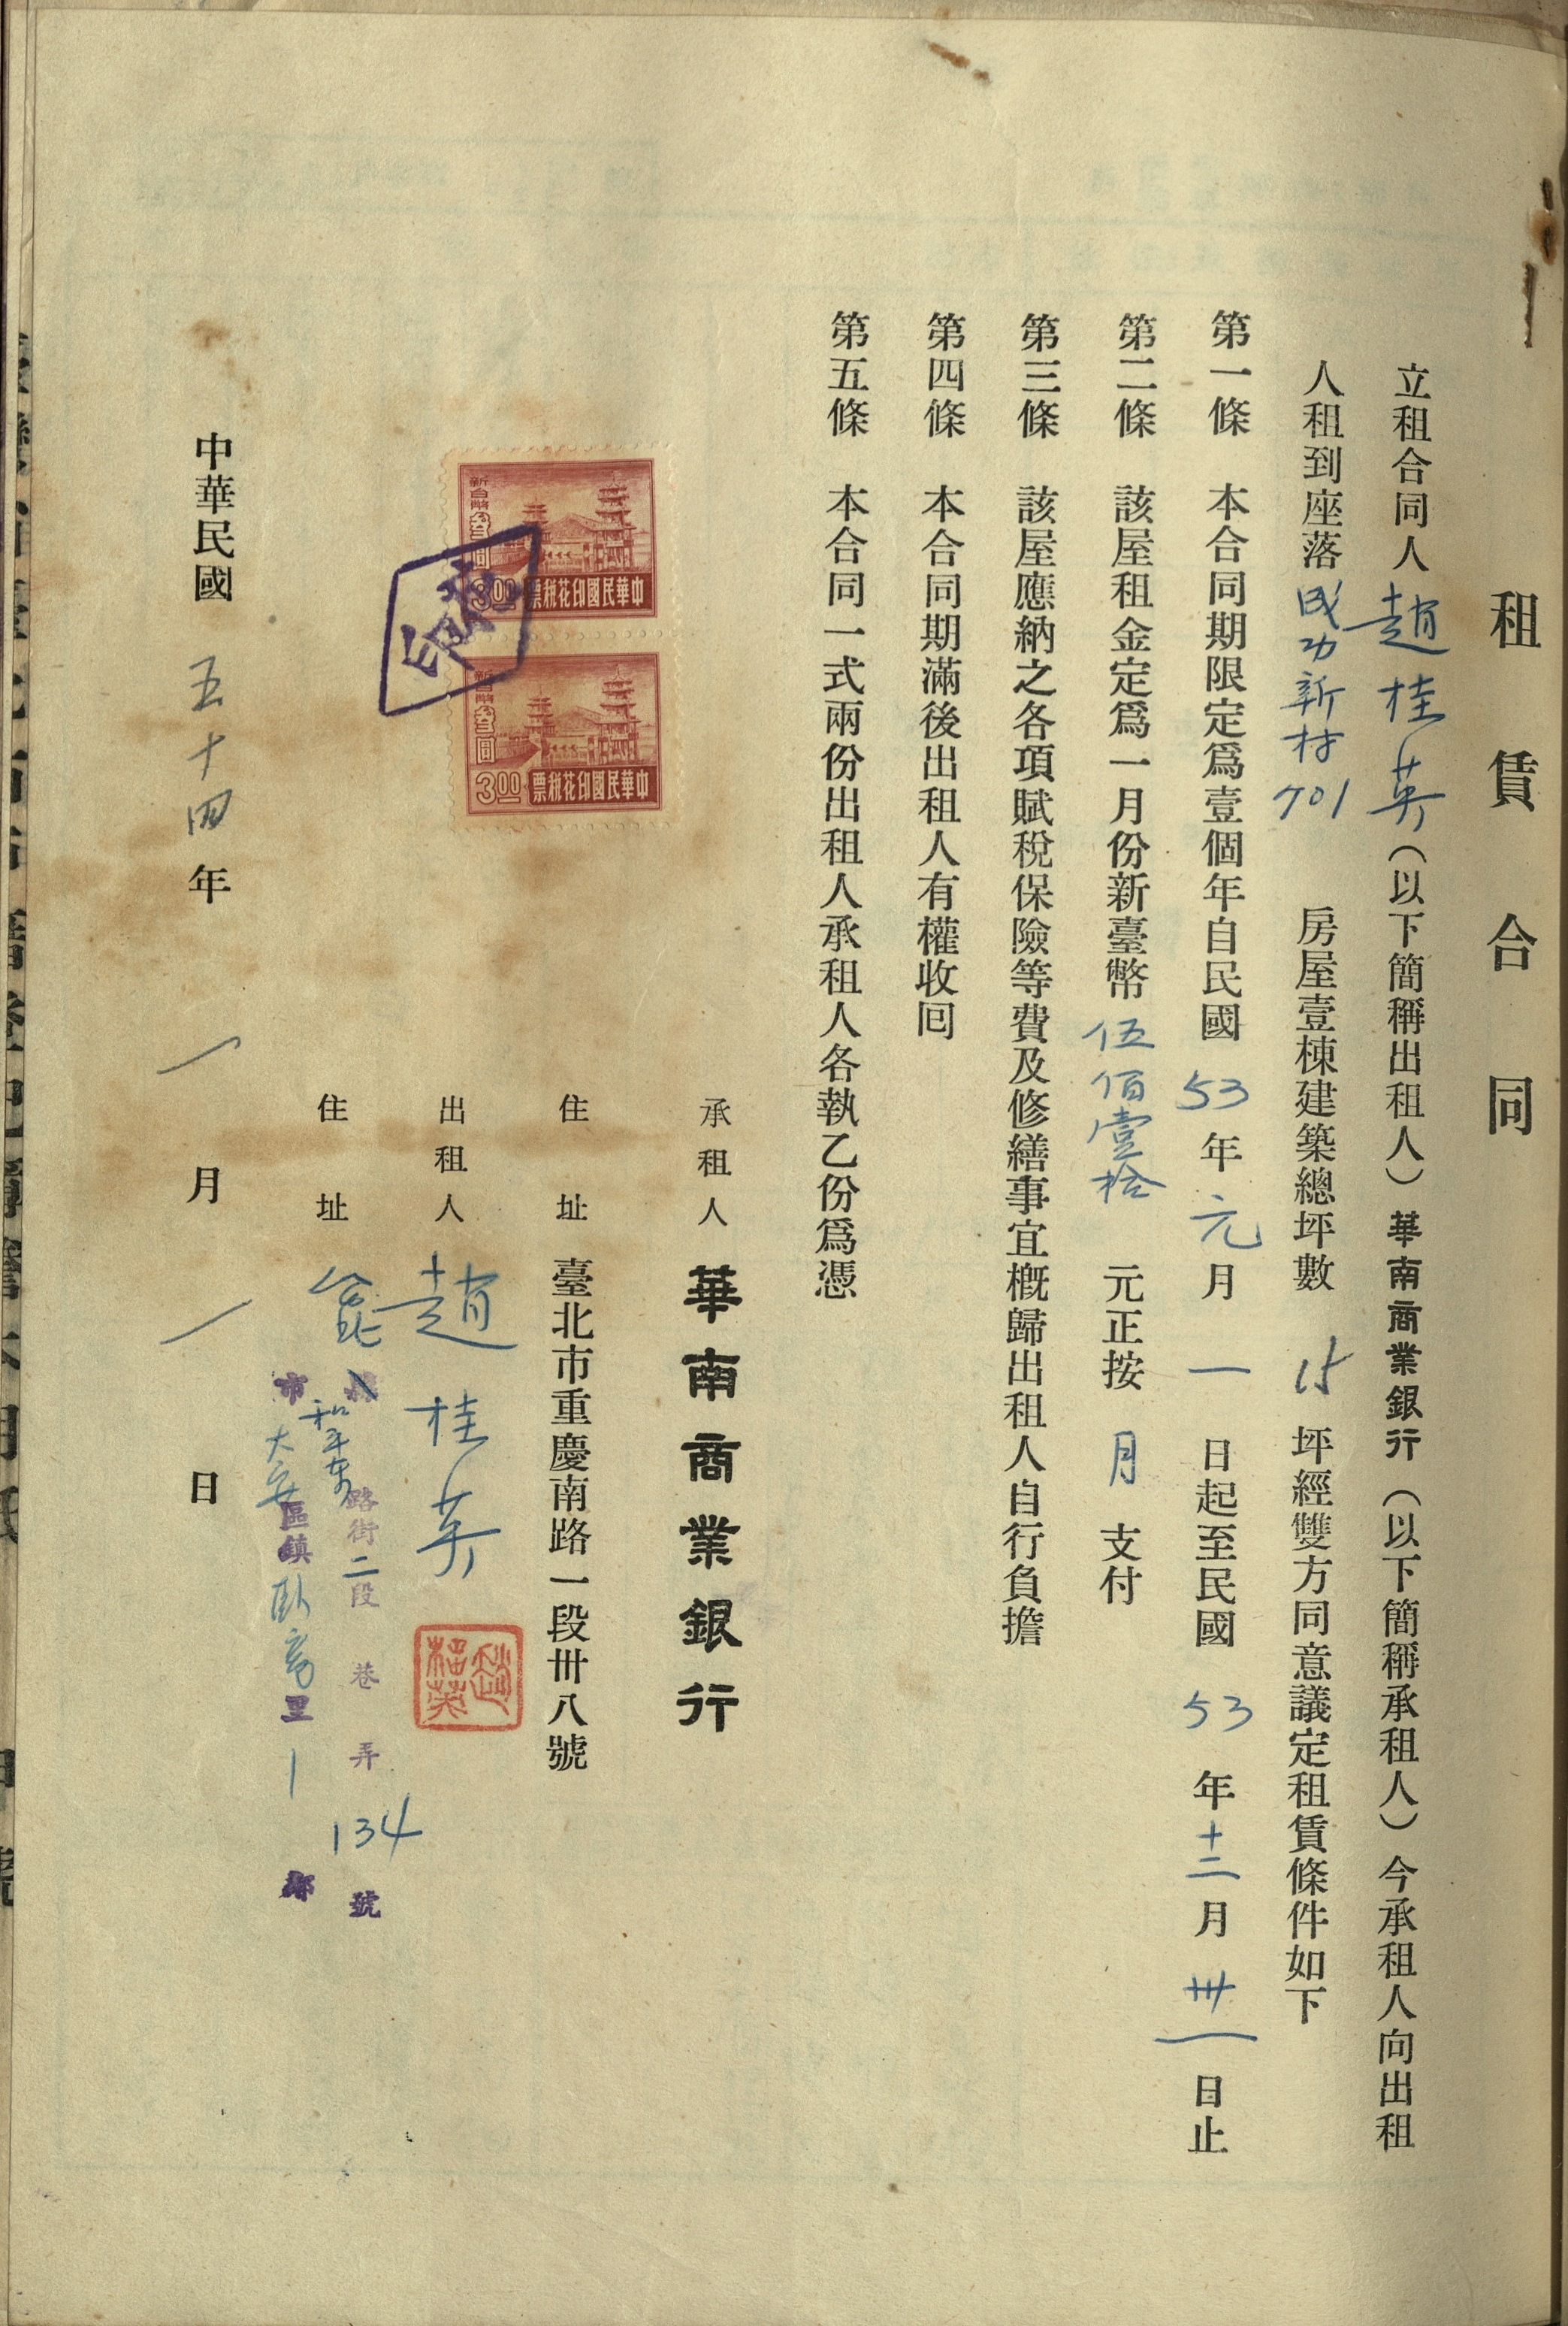 租賃合同
立租合同人趙桂英（以下簡稱出租人）華南商業銀行（以下簡稱承租人）今承租人向出租
人租到座落成功新村701房屋壹棟建築總坪數15坪經雙方同意議定租賃條件如下
第一條　本合同期限定爲壹個年自民國53年元月一日起至民國53年十二月卅一日止
第二條　該屋租金定爲一月份新臺幣伍佰壹拾元正按月支付
第三條　該屋應納之各項賦稅保險等費及修繕事宜槪歸出租人自行負擔
第四條　本合同期滿後出租人有權收囘
第五條　本合同一式兩份出租人承租人各執乙份爲憑
承租人　華南商業銀行
住址　臺北市重慶南路一段卅八號
出租人　趙桂英
趙桂英
住址
和平東路街二段巷弄134號
市大安區鎮臥龍里1鄰
新台幣叁圓
3.00
中華民國印花稅票
新台幣叁圓
3.00
中華民國印花稅票
中華民國五十四年一月一日